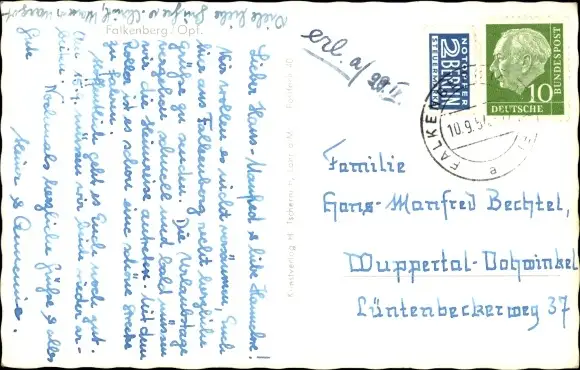 Viele liebe Grüße v.
Falkenberg / Opf.
Lieber Hans-Manfred & liebe Hannelore!
Wir wollen es nicht versäumen, Euch
hier aus Falkenberg recht herzliche
Grüße zu senden. Die Urlaubstage
vergehen schnell und bald müssen
wir die Heimreise antreten. Mit dem
Roller ist es schon eine schöne Strecke
zu fahren.
Hoffentlich geht es Euch noch gut.
müssen wir beide wieder ar-
beiten.
Nochmals herzliche Grüße & alles
Gute
Heinz & Annemie.
Kunstverlag H.
erl. a/ 29.II.
NOTOPFER
2 BERLIN
STEUERMARKE
DEUTSCHE
BUNDESPOST
10
FALKEN
10.9.5
a
Familie
Hans-Manfred Bechtel,
Wuppertal-Vohwinkel
Lüntenbeckerweg 37